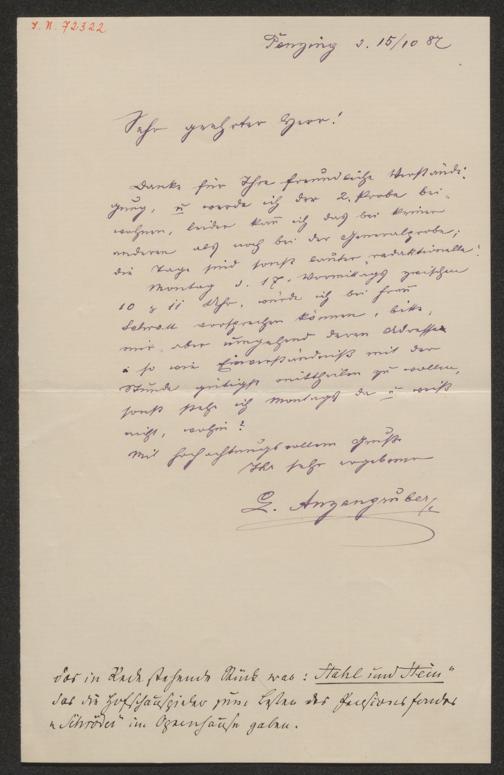 I. N. 72322
Penzing d. 15/10 87
Sehr geehrter Herr!
Danke für Ihre freundliche Verständi-
gung, u werde ich der 2. Probe bei-
wohnen, leider kan ich das bei keiner
anderen als noch bei der Generalprobe,
die Tage sind sonst lauter "redaktionelle".
Montag d. 17. Vormittags zwischen
10 & 11 Uhr, würde ich bei Frau
Schratt vorsprechen können, bitte,
mir aber umgehend deren Adresse
so wie Einverständniß mit der
Stunde gütigst mittheilen zu wollen,
sonst stehe ich Montags da u weiß
nicht, wohin?
Mit hochachtungsvollem Gruße
Ihr sehr ergebener
L. Anzengruber
Das in Rede stehende Stück war: "Stahl und Stein"
das die Hofschauspieler zum Besten des Pensionsfondes
"Schröder" im Opernhause gaben.